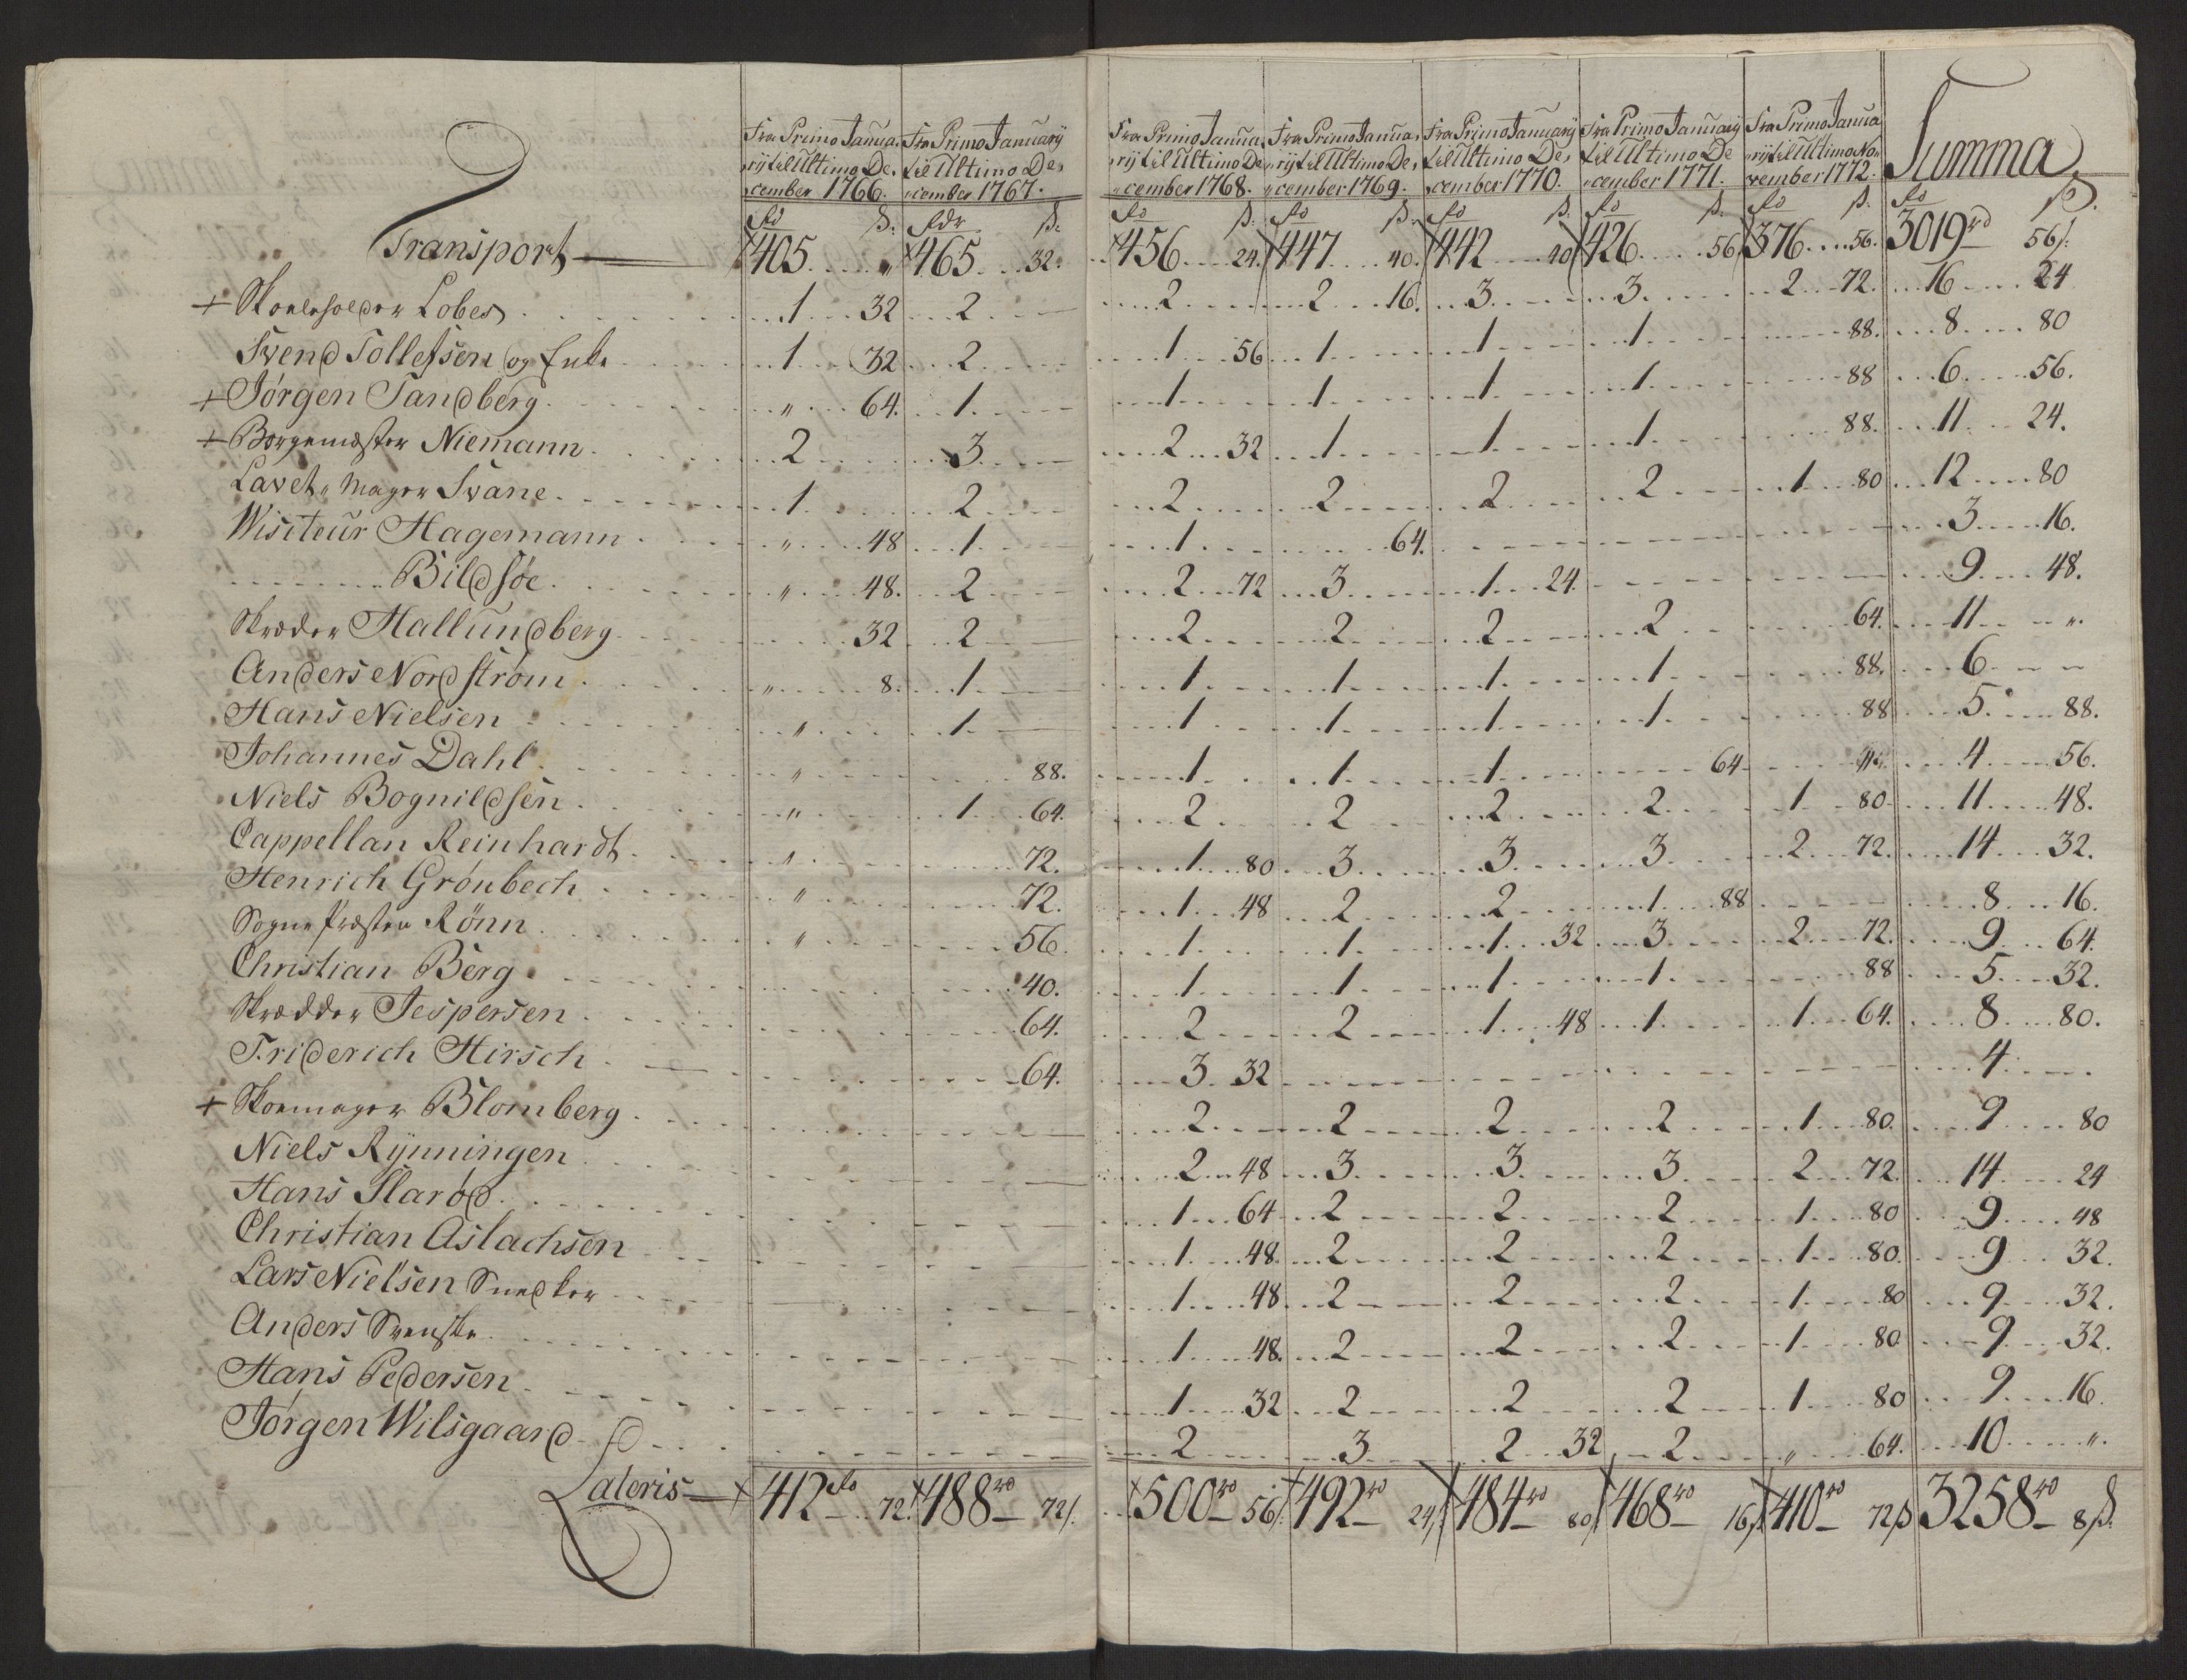 Fra Primo Janua- Fra Primo January Fra Primo Janua- Fra Primo Janua- Fra Primo January Fra Primo January Fra Primo Janua Summa
rij til Ultimo De- til Ultimo De- rij til Ultimo De- rij til Ultimo De- til Ultimo De- til Ultimo De rij til Ultimo No-
cember 1766. cember 1767. cember 1768. cember 1769. cember 1770. cember 1771. vember 1772.
Rd ß. Rdr ß. Rd ß. Rd ß. Rd ß. Rd ß. Rd ß. Rd ß.
Transport 405 " 465 32. 456 24. 447 40. 442 40 426 56 376 56. 3019 rd 56ß.
+ Skoeleholder Lobes 1 32 2 2 2 16. 3 3 2 72. 16 24
Svend Tollefsen og Enke 1 32 2 1 56 1 1 1 88. 8 80
+ Jørgen Sandberg " 64. 1 1 1 1 1 88 6 56.
+ Borgemester Niemann 2 3 2 32 1 1 1 88. 11 24.
Lavet-Mager Svane 1 2 2 2 2 2 1 80 12 80
Wisiteur Hagemann " 48 1 1 64. 3 16.
Bildsøe " 48. 2 2 72 3 1 24. 9 48.
Skræder Hallundberg 32 2 2 2 2 2 64. 11 "
Anders Nordstrøm " 8. 1 1 1 1 1 88. 6
Hans Nielsen " 1 1 1 1 1 88 5 88.
Johannes Dahl " 88. 1 1 1 64 4 56.
Niels Bognildsen " 1 64. 2 2 2 2 1 80 11 48.
Cappellan Reinhardt " 72. 1 80 3 3 3 2 72. 14 32.
Henrich Grønbech " 72. 1 48 2 2 1 88 8 16.
Sogne Præsten Rönn " 56 1 1 1 32 3 2 72. 9 64.
Christian Berg 40. 1 1 1 1 88 5 32.
Skrædder Jespersen 64. 2 2 1 48 1 1 64. 8 80.
Friderich Hirsch 64. 3 32 4
+ Skoemager Blomberg 2 2 2 2 1 80. 9 80
Niels Rynningen 2 48 3 3 3 2 72. 14 24
Hans Slarød 1 64 2 2 2 1 80 9 48
Christian Aslachsen 1 48. 2 2 2 1 80. 9 32.
Lars Nielsen Snedker 1 48 2 2 2 1 80 9 32.
Anders Svenske 1 48. 2 2 2 1 80 9 32.
Hans Pedersen 1 32 2 2 2 1 80 9 16.
Jørgen Wilsgaard 2 3 2 32 2 " 64. 10 "
Lateris 412 rd 72. 488 rd 72ß. 500 rd 56ß. 492 rd 24ß. 484 rd 80ß 468 rd 16ß. 410 rd 72ß 3258 rd 8ß.